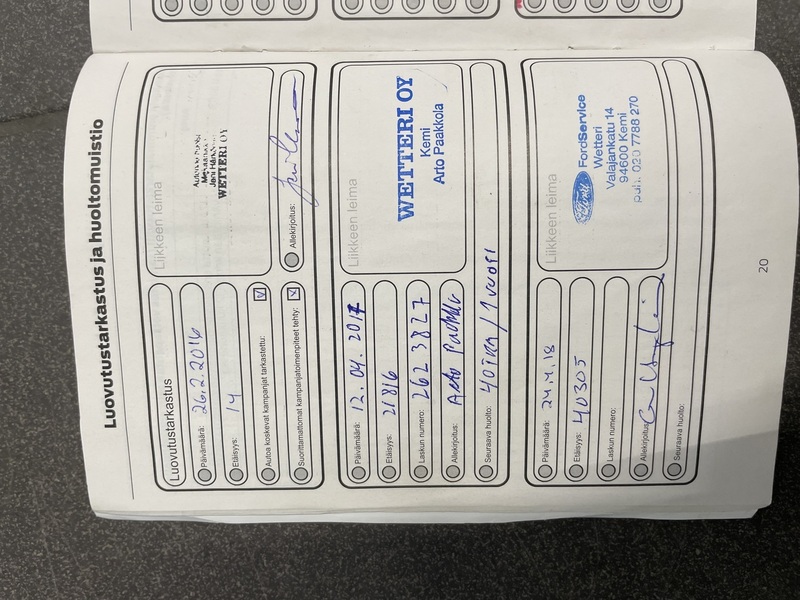 Luovutustarkastus ja huoltomuistio
Luovutustarkastus
Päivämäärä: 26.2.2016
Etäisyys: 14
Autoa koskevat kampanjat tarkastettu:
Suorittamattomat kampanjatoimenpiteet tehty:
Liikkeen leima
WETTERI OY
Allekirjoitus:
Päivämäärä: 12.04.2017
Etäisyys: 21816
Laskun numero: 2623827
Allekirjoitus: Arto Paakkola
Seuraava huolto: 40tkm / 1 vuosi
Liikkeen leima
WETTERI OY
Kemi
Arto Paakkola
Päivämäärä: 24.4.18
Etäisyys: 40305
Laskun numero:
Allekirjoitus:
Seuraava huolto:
Liikkeen leima
Ford
FordService
Wetteri
Valajankatu 14
94600 Kemi
puh. 020 7788 270
20